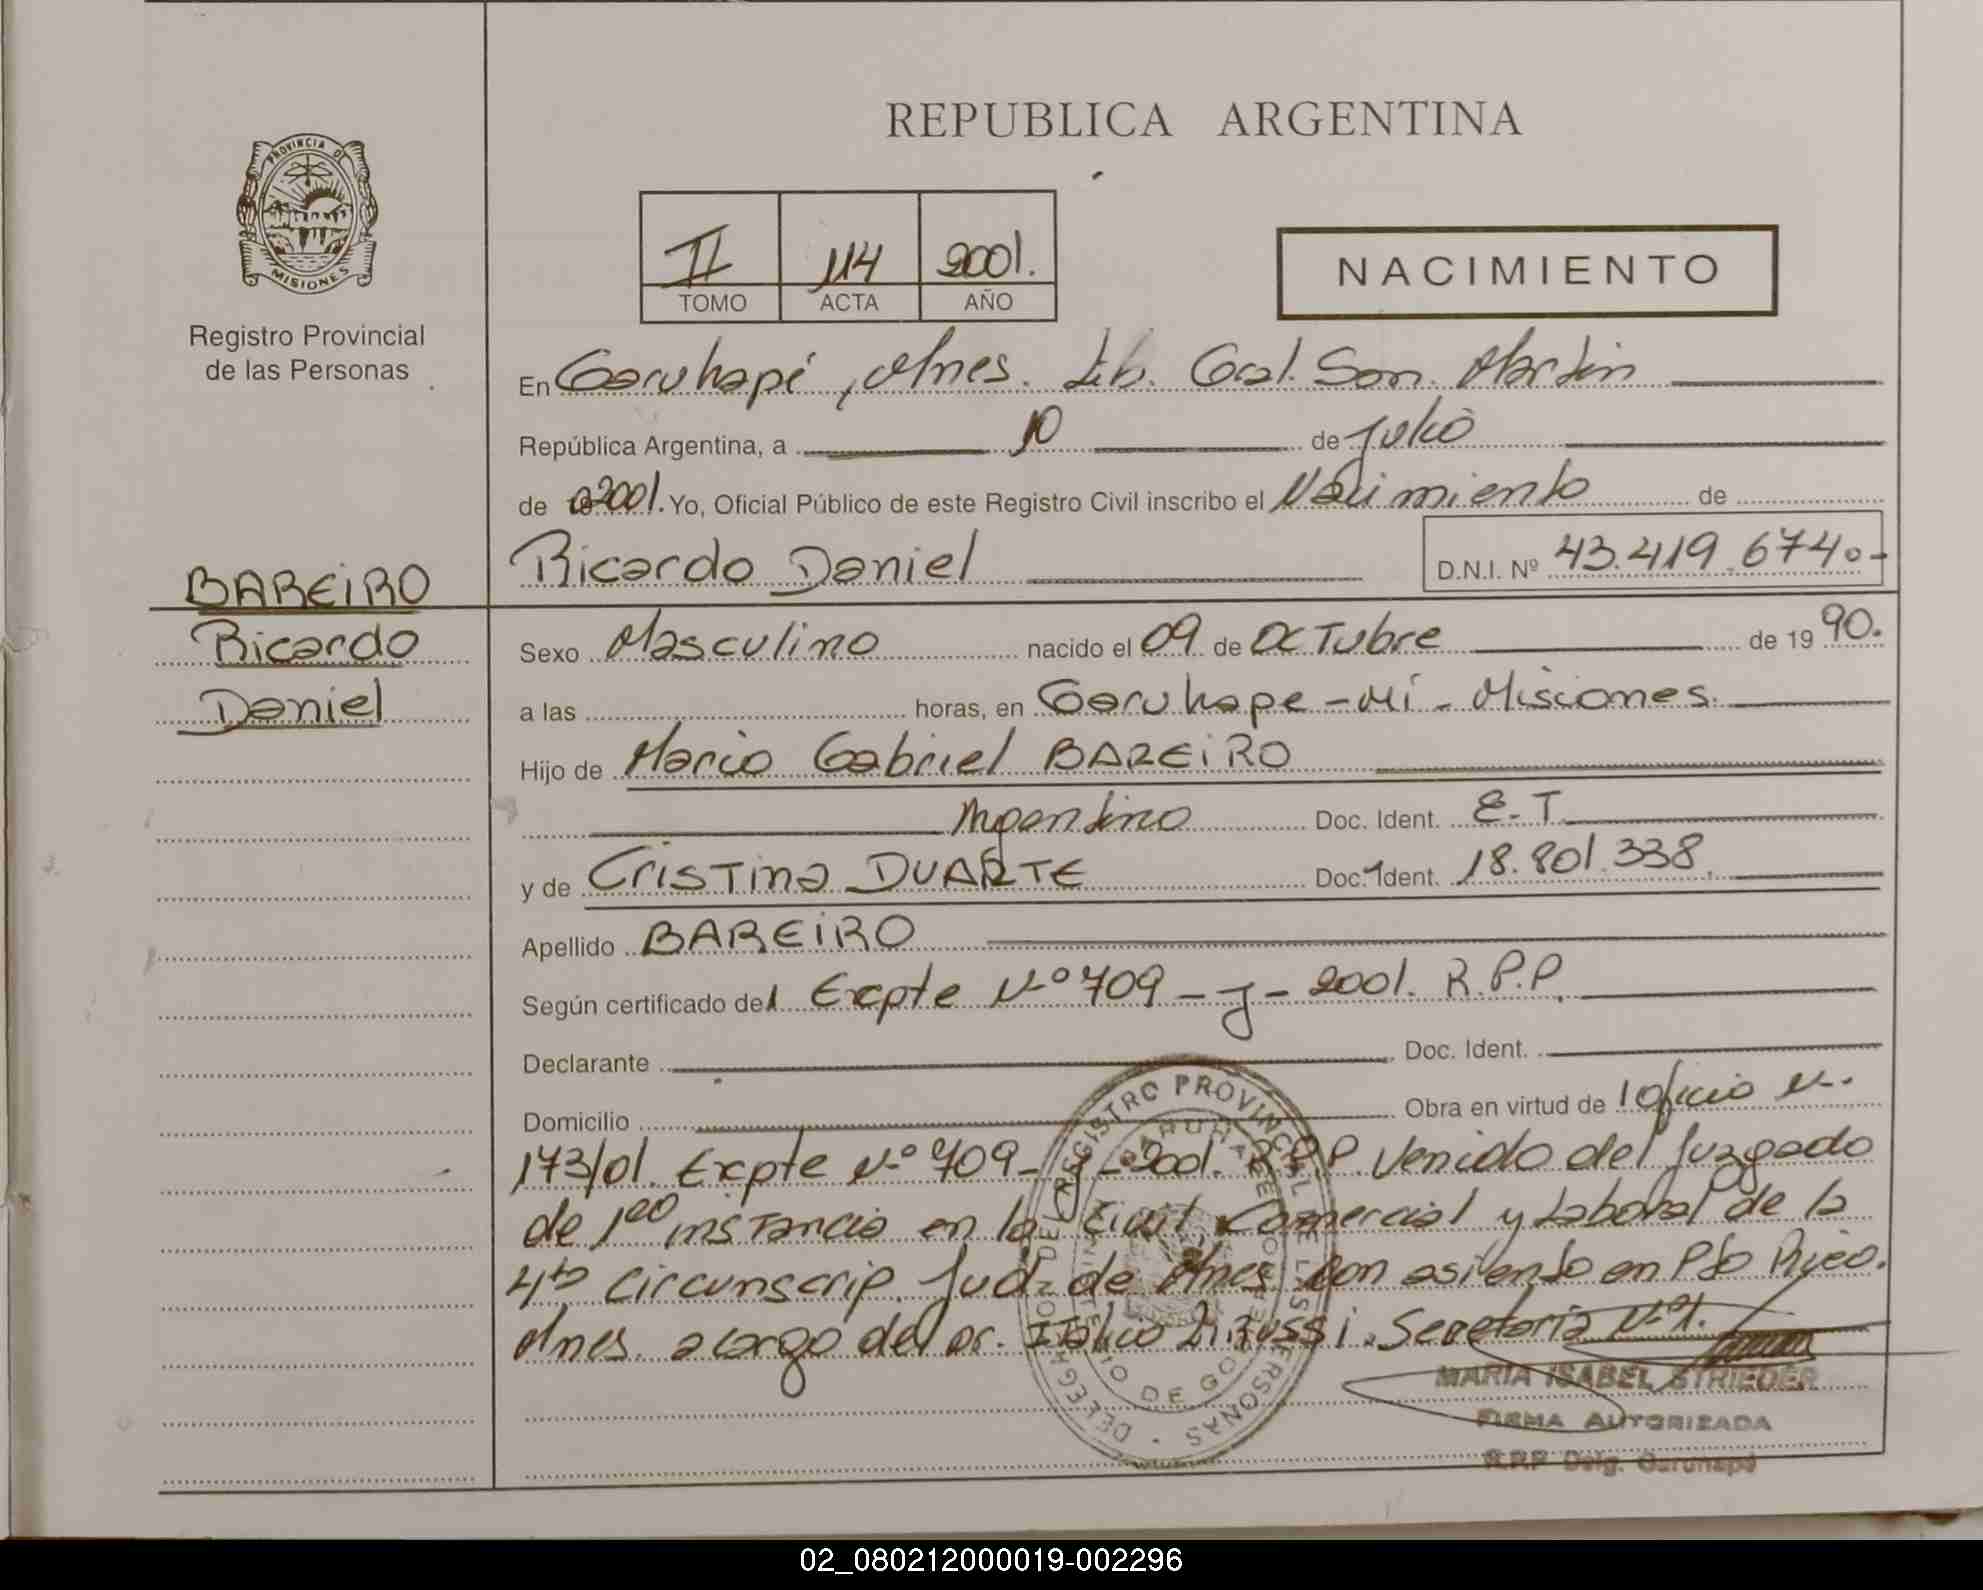 REPUBLICA ARGENTINA
PROVINCIA DE
MISIONES
Registro Provincial
de las Personas
II 114 2001.
TOMO ACTA AÑO
NACIMIENTO
En Garuhapé, Mnes. Lib. Gral. San Martin
República Argentina, a 10 de Julio
de 2001. Yo, Oficial Público de este Registro Civil inscribo el Nacimiento de
Ricardo Daniel D.N.I. Nº 43.419.674.-
BAREiRO
Ricardo
Daniel
Sexo Masculino nacido el 09 de OCTubre de 1990.
a las horas, en Garuhape-Mí-Misiones.
Hijo de Mario Gabriel BAREiRO
Argentino Doc. Ident. E.T.
y de CrisTina DUARTE Doc. Ident. 18.801.338
Apellido BAREiRO
Según certificado del Expte Nº 709-J-2001. R.P.P.
Declarante Doc. Ident.
Domicilio Obra en virtud de Oficio N.
173/01. Expte Nº 709-J-2001. R.P.P. Venido del Juzgado
de 1era insTancia en lo Civil Comercial y Laboral de la
4ta Circunscrip. Jud. de Mnes con asiento en Pto Rico.
Mnes. a cargo del Dr. Italico Secretaria Nº 1.
MARIA ISABEL STRIEDER
FIRMA AUTORIZADA
R.P.P. Delg. Garuhapé
REGISTRO PROVINCIAL DE LAS PERSONAS
02_080212000019-002296